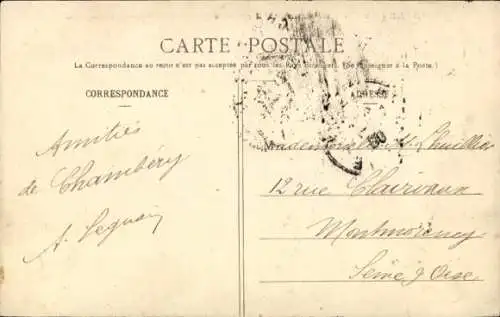 CARTE POSTALE
La Correspondance au verso n'est pas acceptée par tous les Pays étrangers. (Se renseigner à la Poste.)
CORRESPONDANCE
ADRESSE
Amitiés
de Chambéry
A.
Mademoiselle M. Lhuillier
12 rue Clairvaux
Montmorency
Seine & Oise